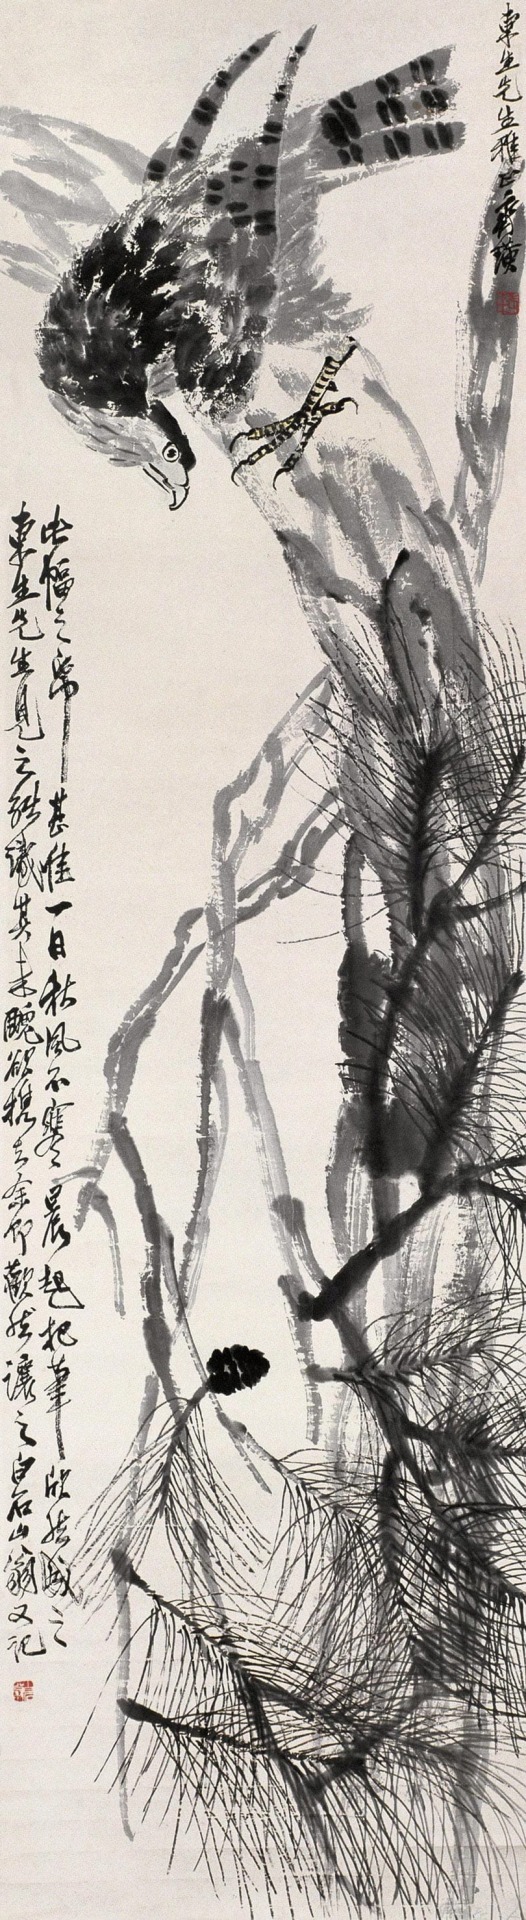 東生先生雅正齊璜
此幅之帋甚佳一日秋風不寒晨起把筆欣然成之
東生先生見之能識其未醜欲攜去余即歡然讓之白石山翁又記